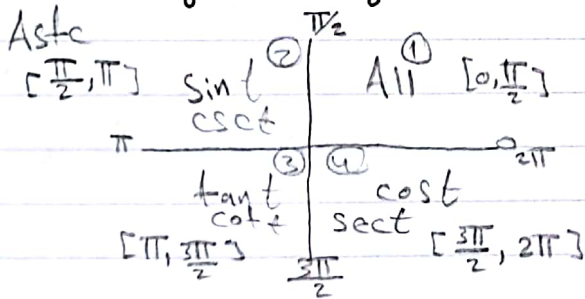 Astc
π/2
[π/2, π]
sin t
csct
②
All
①
[0, π/2]
π
0
2π
③
④
tant
cott
cost
sect
[π, 3π/2]
[3π/2, 2π]
3π/2